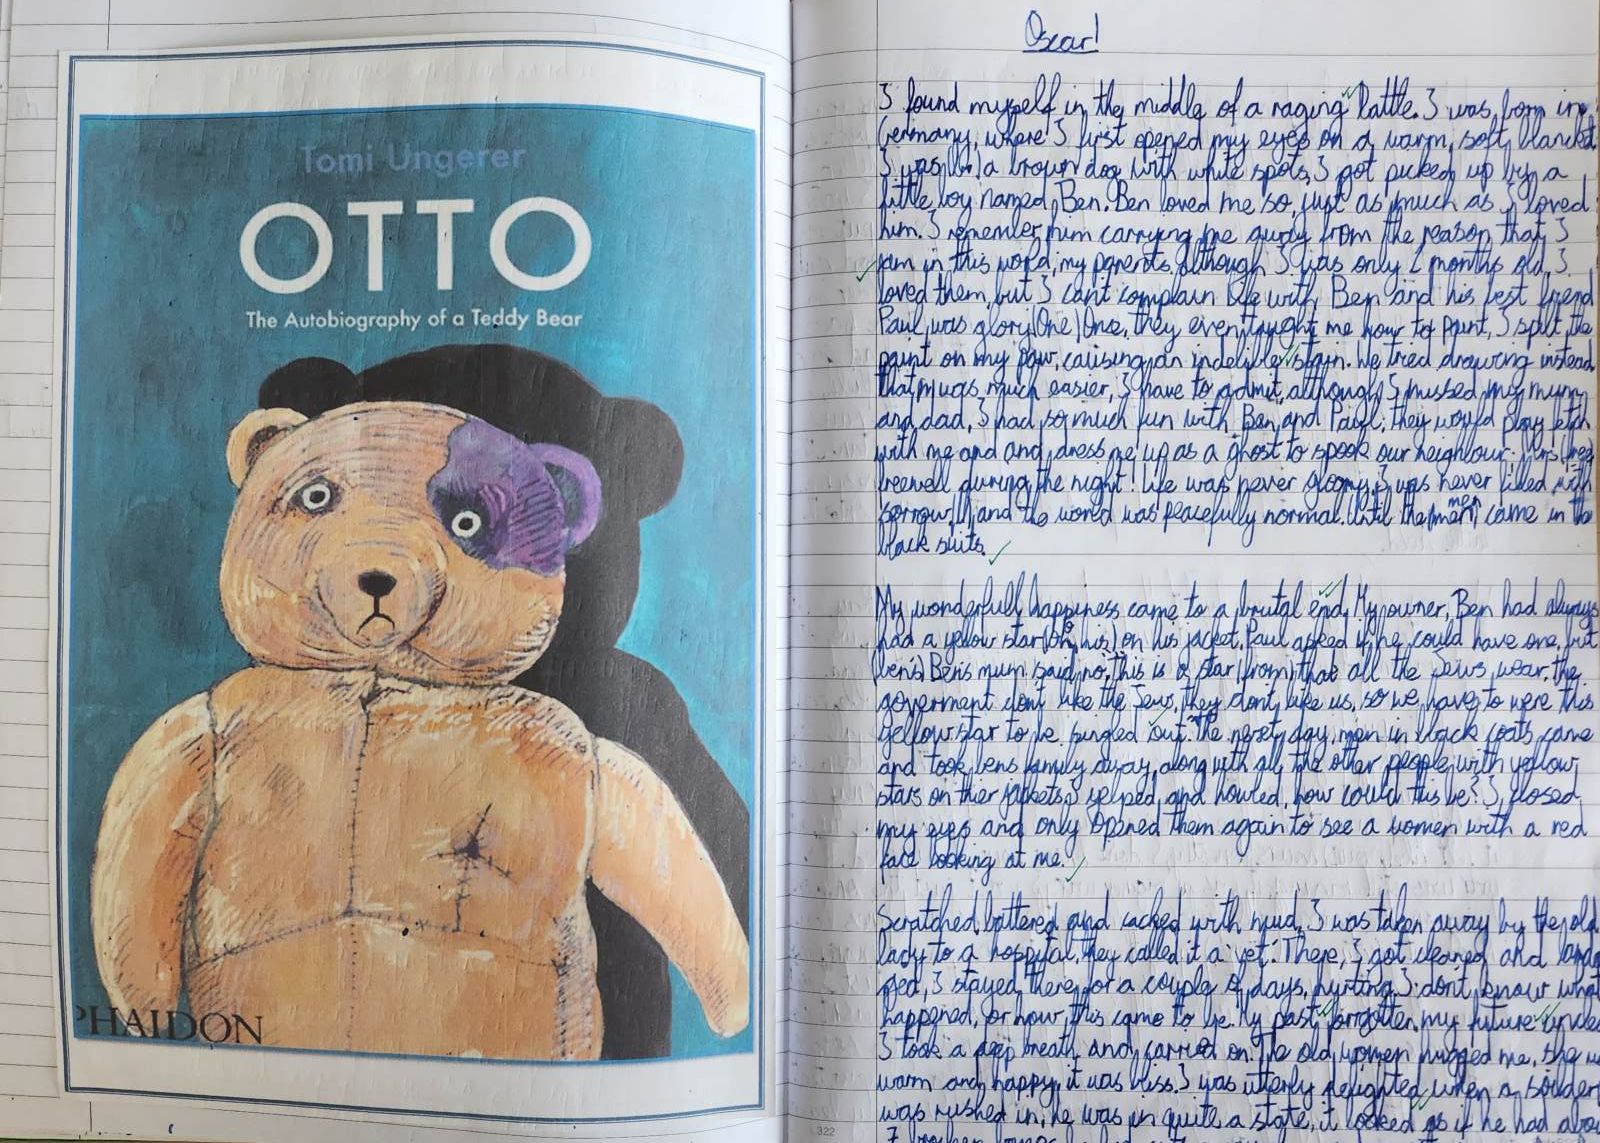 Tomi Ungerer
OTTO
The Autobiography of a Teddy Bear
PHAIDON
Oscar!
I found myself in the middle of a raging battle. I was born in
Germany, where I first opened my eyes on a warm, soft blancket.
I was a brown dog with white spots, I got picked up by a
little boy named, Ben. Ben loved me so, just as much as I loved
him. I remember him carrying me away from the reason that I
am in this world, my parents. Although I was only 2 months old, I
loved them, but I can't complain life with Ben and his best friend
Paul, was glory (One) Once, they even taught me how to paint, I spilt the
paint on my paw, causing an indelible stain. We tried drawing instead,
that was much easier, I have to admit, although I missed my mum
and dad, I had so much fun with Ben and Paul; they would play fetch
with me and and dress me up as a ghost to spook our neighbour. Mrs
beewell during the night! Life was never gloomy, I was never filled with
sorrow, and the world was peacefully normal. Until the men came in the
black suits.
My wonderfull happiness came to a brutal end. My owner, Ben had always
had a yellow star (on his) on his jacket. Paul asked if he could have one, but
(bens) Bens mum said, no, this is a star (from) that all the Jews wear. the
government dont like the Jews, they dont like us, so we have to were this
yellow star to be singled out. the next day, men in black coats came
and took bens family away, along with all the other people with yellow
stars on thier jackets, I yelped and howled, how could this be? I closed
my eyes and only opened them again to see a women with a red
face looking at me.
Scratched battered and cacked with mud, I was taken away by the old
lady to a hospital, they called it a 'vet'. There, I got cleaned and
ged, I stayed there for a couple of days, hurting. I dont know what
happened, or how this came to be. My past forrgotten, my future
I took a deep breath and carried on. The old women hugged me, she
warm and happy, it was bliss. I was utterly delighted when a
was rushed in, he was in quite a state, it looked as if he had
322